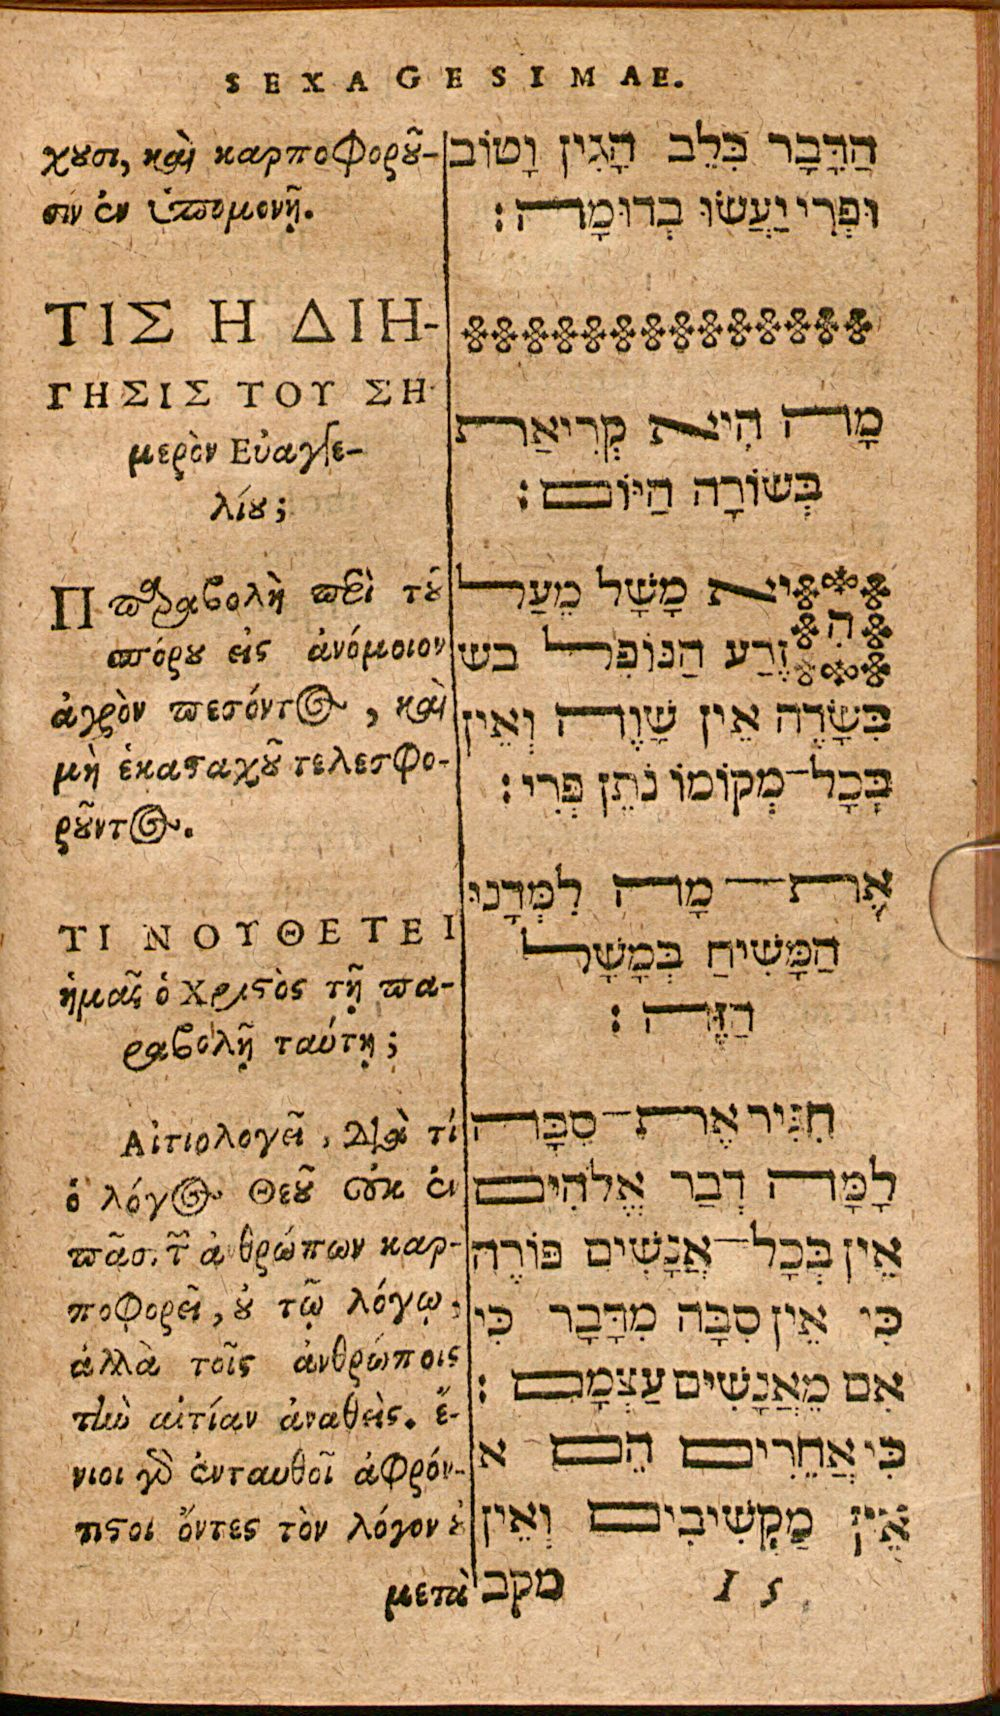 SEXAGESIMAE.
χουσι, καὶ καρποφοροῦ-
σιν ἐν ὑπομονῇ.
ΤΙΣ Η ΔΙΗ-
ΓΗΣΙΣ ΤΟΥ ΣΗ
μερὸν Εὐαγγε-
λίου;
Παραβολὴ περὶ τοῦ
σπόρου εἰς ἀνόμοιον
ἀγρὸν πεσόντος, καὶ
μὴ ἑκασταχοῦ τελεσφο-
ροῦντος.
ΤΙ ΝΟΥΘΕΤΕΙ
ἡμᾶς ὁ Χριστὸς τῇ πα-
ραβολῇ ταύτῃ;
Αἰτιολογεῖ, διὰ τί
ὁ λόγος Θεοῦ οὐκ ἐν
πᾶσι τῶν ἀνθρώπων καρ-
ποφορεῖ, οὐ τῷ λόγῳ,
ἀλλὰ τοῖς ἀνθρώποις
τὴν αἰτίαν ἀναθείς. ἔ-
νιοι γὰρ ἐνταυθοῖ ἀφρόν-
τιστοι ὄντες τὸν λόγον οὐ
μετὰ
הַדָּבָר בְּלֵב הָגִין וָטוֹב
וּפְרִי יַעֲשׂוּ בְדוּמָה :
מָה הִיא קְרִיאַת
בְּשׂוֹרָה הַיּוֹם :
הִיא מָשָׁל מֵעַל
זֶרַע הַנּוֹפֵל בש
בְּשָׂדֶה אֵין שָׁוֶה וְאֵין
בְּכָל־מְקוֹמוֹ נֹתֵן פְּרִי :
אֶת־מָה לִמְּדָנוּ
הַמָּשִׁיחַ בְּמָשָׁל
הַזֶּה :
הִגִּיד אֶת־סִבָּה
לָמָּה דְבַר אֱלֹהִים
אֵין בְּכָל־אֲנָשִׁים פּוֹרֶה
כִּי אֵין סִבָּה מִדָּבָר כִּי
אִם מֵאֲנָשִׁים עַצְמָם :
כִּי אֲחֵרִים הֵם א
אֵין מַקְשִׁיבִים וְאֵין
מקב
I 5